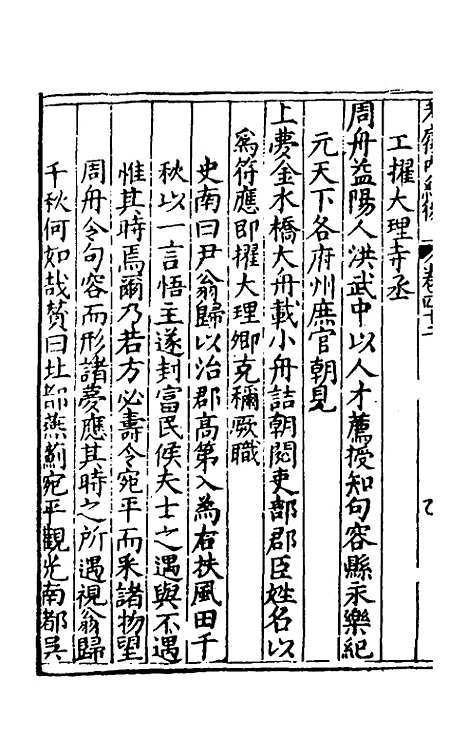 卷四十二
工擢大理寺丞
周舟益陽人洪武中以人才薦授知句容縣永樂紀
元天下各府州庶官朝見
上夢金水橋大舟載小舟詰朝閱吏部郡臣姓名以
爲符應即擢大理卿克稱厥職
史南曰尹翁歸以治郡高第入為右扶風田千
秋以一言悟主遂封富民侯夫士之遇與不遇
惟其時焉爾乃若方必壽令宛平而釆諸物望
周舟令句容而形諸夢應其時之所遇視翁歸
千秋何如哉贊曰北都燕薊宛平觀光南都吳